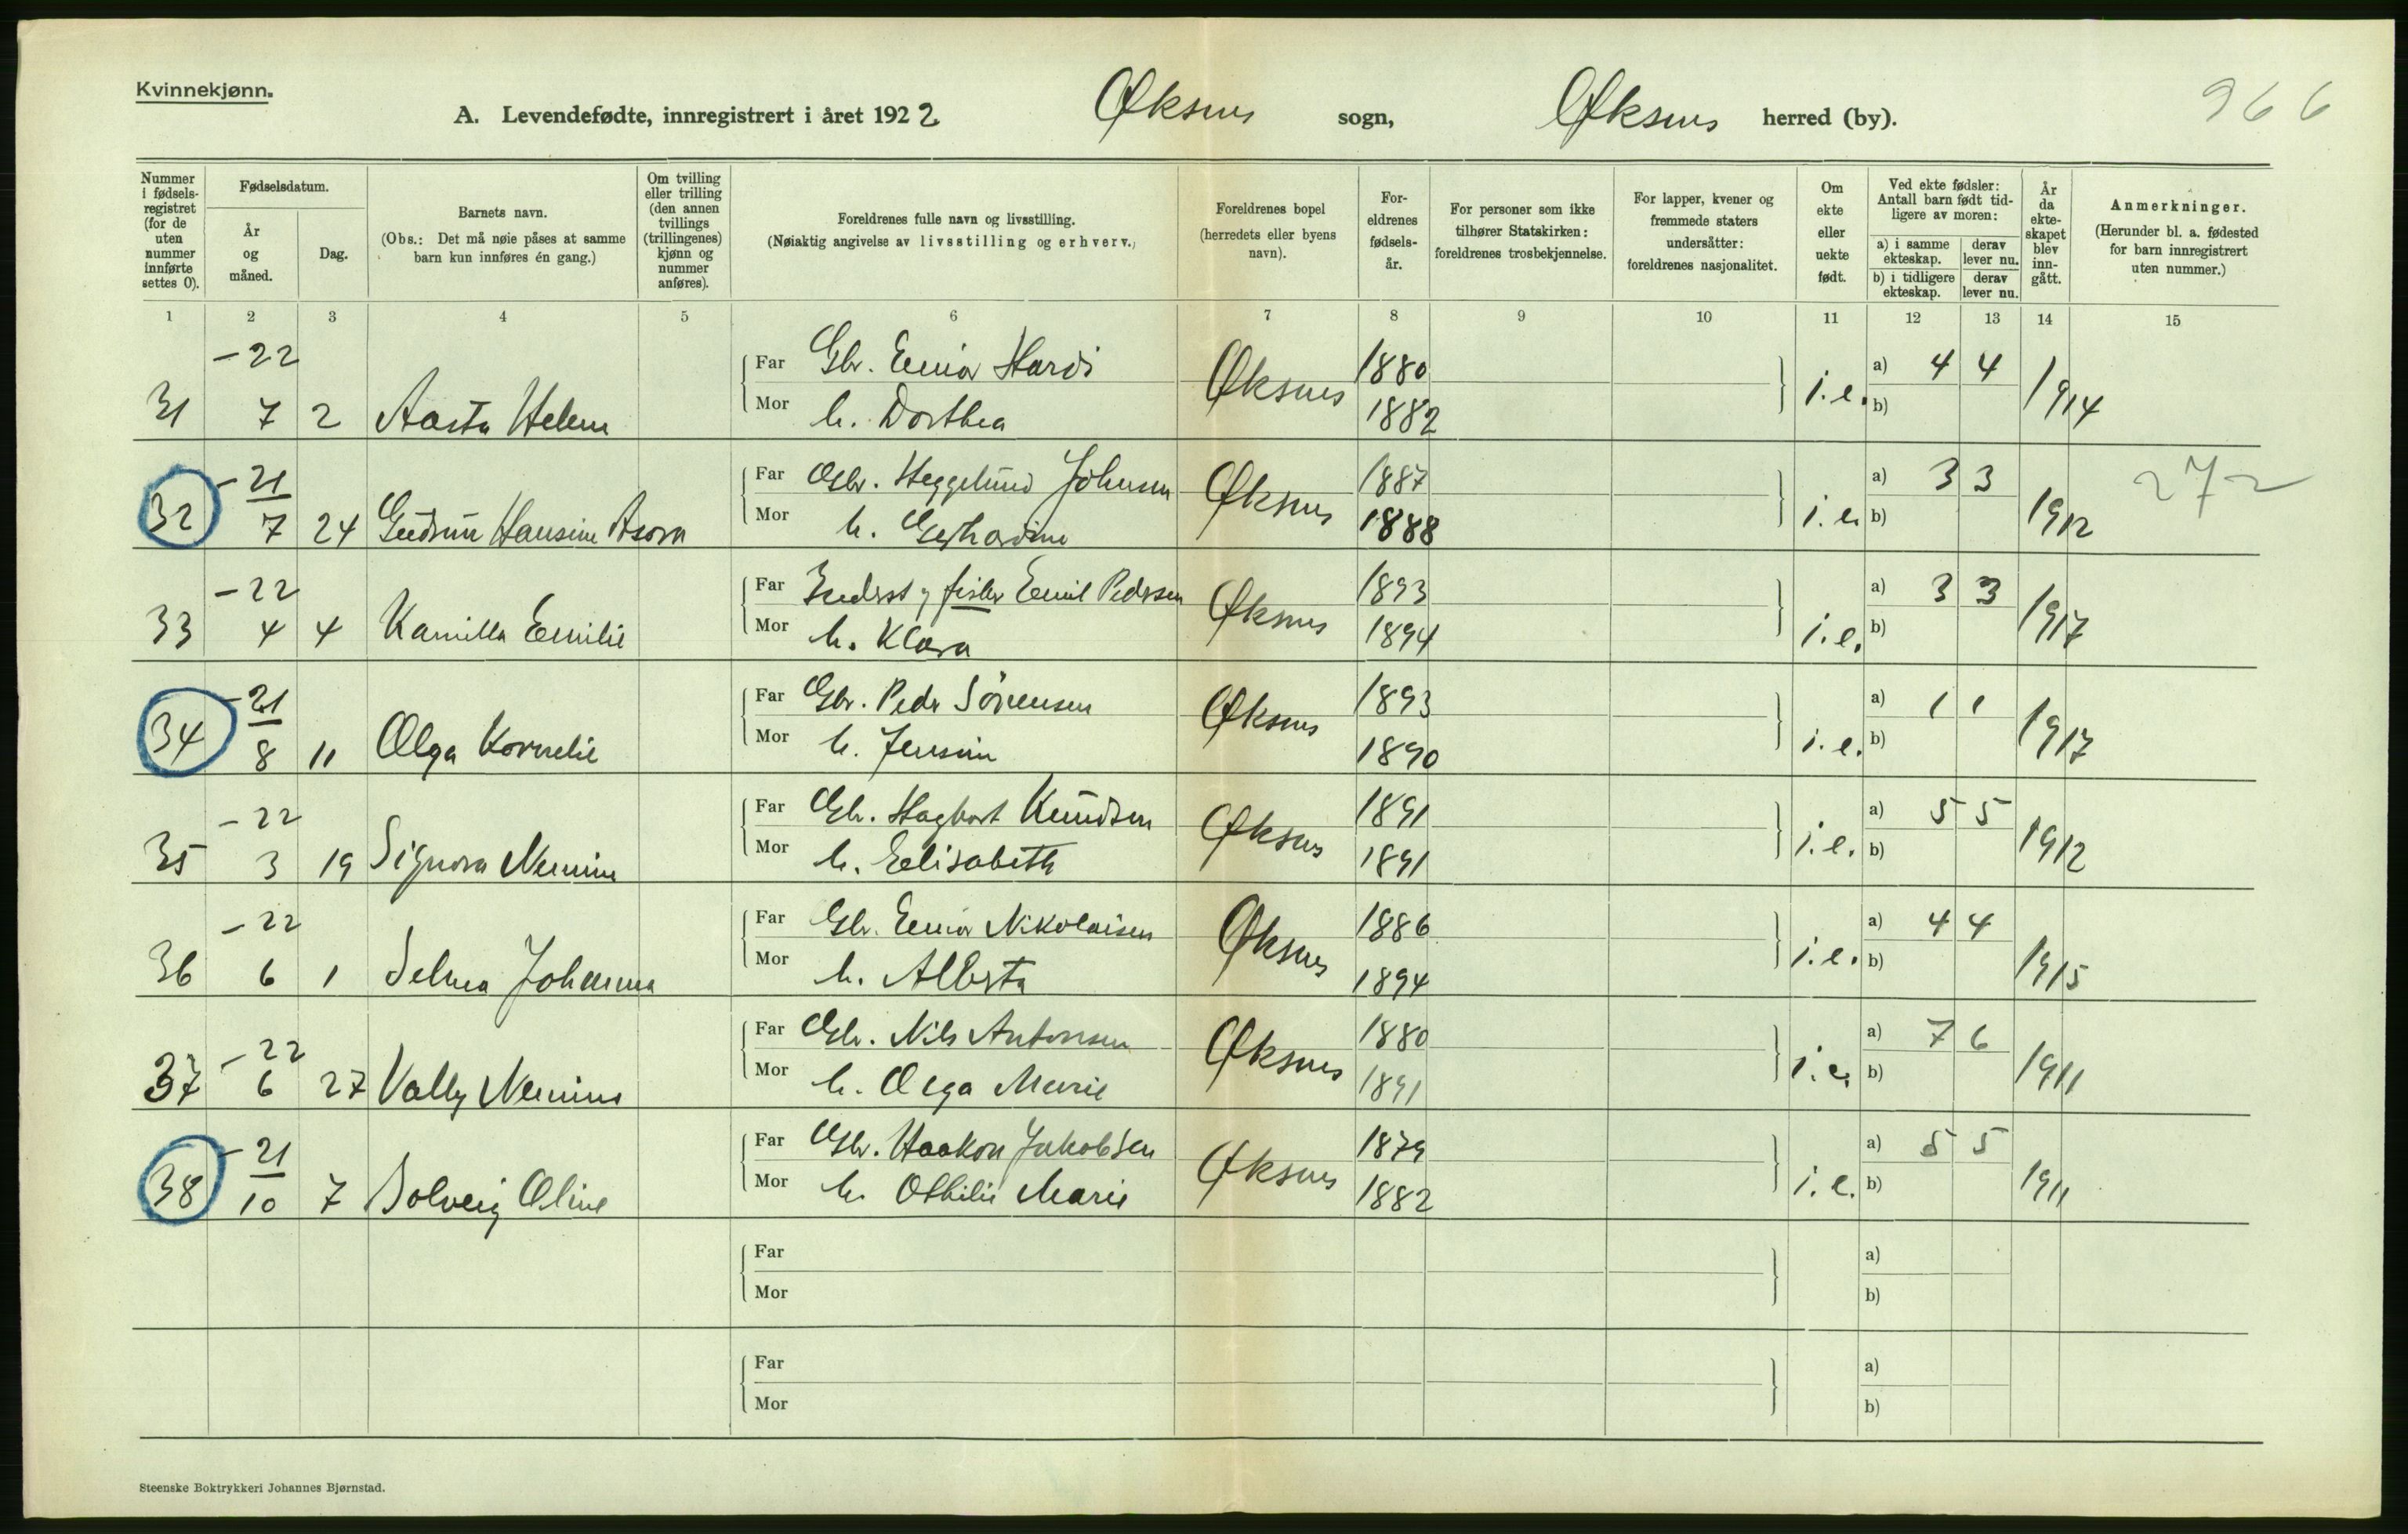 Kvinnekjønn.
A. Levendefødte, innregistrert i året 1922 Øksnes sogn, Øksnes herred (by). 966
Nummer i fødsels-registret (for de uten nummer innførte settes 0).
Fødselsdatum.
År og måned.
Dag.
Barnets navn.
(Obs.: Det må nøie påses at samme barn kun innføres én gang.)
Om tvilling eller trilling (den annen tvillings (trillingenes) kjønn og nummer anføres).
Foreldrenes fulle navn og livsstilling.
(Nøiaktig angivelse av livsstilling og erhverv.)
Foreldrenes bopel (herredets eller byens navn).
For-eldrenes fødsels-år.
For personer som ikke tilhører Statskirken: foreldrenes trosbekjennelse.
For lapper, kvener og fremmede staters undersåtter: foreldrenes nasjonalitet.
Om ekte eller uekte født.
Ved ekte fødsler: Antall barn født tid-ligere av moren:
a) i samme ekteskap. derav lever nu.
b) i tidligere ekteskap. derav lever nu.
År da ekte-skapet blev inn-gått.
Anmerkninger.
(Herunder bl. a. fødested for barn innregistrert uten nummer.)
1 2 3 4 5 6 7 8 9 10 11 12 13 14 15
-22 Far Gbr. Einar Hardi 1880 a) 4 4
31 7 2 Aasta Helene Mor h. Dorthea Øksnes 1882 i.e. b) 1914
-21 Far Gbr. Heggelund Johnsen 1887 a) 3 3 272
32 7 24 Gudrun Hansine Asora Mor h. Gerhardine Øksnes 1888 i.e. b) 1912
-22 Far fisker Emil Pedersen 1893 a) 3 3
33 4 4 Kamilla Emilie Mor h. Klara Øksnes 1894 i.e. b) 1917
-21 Far Gbr. Peder Sörensen 1893 a) 1 1
34 8 11 Olga Kornelie Mor h. Jensine Øksnes 1890 i.e. b) 1917
-22 Far Gbr. Hagbart Knudsen 1891 a) 5 5
35 3 19 Signora Mor h. Elisabeth Øksnes 1891 i.e. b) 1912
-22 Far Gbr. Einar Nikolaisen 1886 a) 4 4
36 6 1 Selma Johanna Mor h. Alberta Øksnes 1894 i.e. b) 1915
-22 Far Gbr. Nils Antonsen 1880 a) 7 6
37 6 27 Vally Mor h. Olga Marie Øksnes 1891 i.e. b) 1911
-21 Far Gbr. Haakon Jakobsen 1879 a) 5 5
38 10 7 Solveig Oline Mor h. Othilie Marie Øksnes 1882 i.e. b) 1911
Far a)
Mor b)
Far a)
Mor b)
Steenske Boktrykkeri Johannes Bjørnstad.